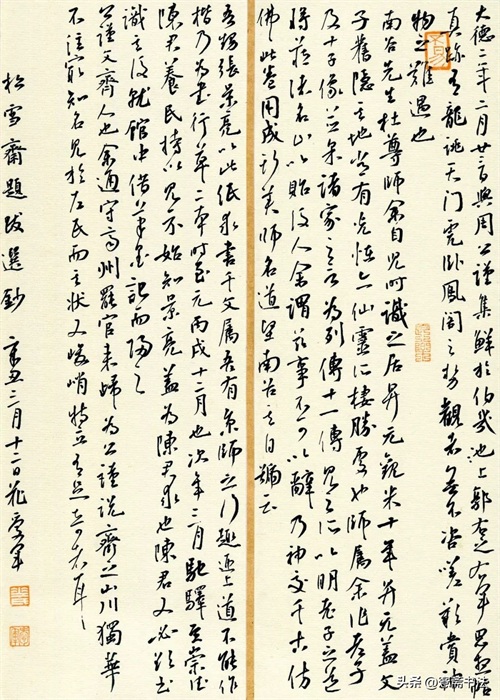 大德二年二月廿三日與周公謹集鮮於伯幾池上郭右之出右軍思想帖
真跡有龍跳天門虎臥鳳閣之勢觀者無不咨嗟歎賞神
物之難遇也
南谷先生杜尊師余自兒時識之居昇元觀來十年昇元蓋文
子舊隱之地嘗有光怪亦仙靈之棲勝處也師属余作老子
及十子像並采諸家之言為列傳十一傳見之所以明老子之道
將藏諸名山以貽後人余謂茲事不可以辭乃神交千古仿
佛此卷用成斯美師名道堅南谷其自號云
吾甥張景亮以此紙求書千文属吾有京師之行趣迫上道不能作
楷乃為書行草二本時至元丙戌十二月也次年三月馳驛至崇德
陳君養民持以見示始知景亮蓋為陳君求也陳君又必欲書
識其後就館中借筆墨記而歸之
公謹父齊人也余通守齊州罷官來歸為公謹說齊之山川獨華
不注最知名見於左氏而其狀又峻峭特立有足奇者耳
松雪齋題跋選鈔 辛丑二月十二日